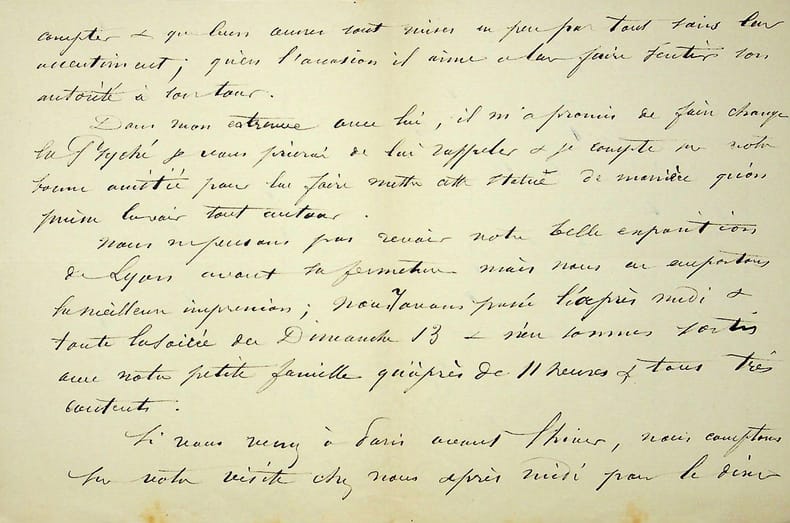 compter & que leurs œuvres sont mises un peu par tout sans leur
assentiment; qu'en l'occasion il aime a leur faire sentir son
autorité à son tour.
Dans mon entrevue avec lui, il m'a promis de faire changer
la Psyché je vous prierai de lui rappeler & je compte sur votre
bonne amitié pour lui faire mettre cette statue de manière qu'on
puisse la voir tout autour.
Nous ne pensons pas revoir votre belle exposition
de Lyon avant sa fermeture mais nous en emportons
la meilleure impression; nous y avons passé l'après midi &
toute la soirée du Dimanche 13 & n'en sommes sortis
avec notre petite famille qu'après de 11 heures & tous très
contents.
Si vous venez à Paris avant l'hiver, nous comptons
sur votre visite chez nous après midi pour le diner